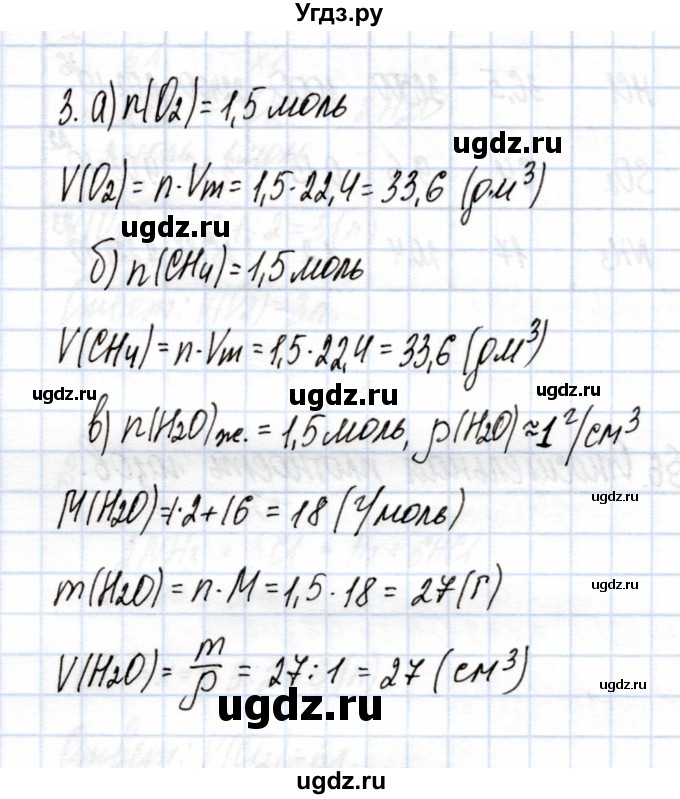 Угдз.ру
3. а) n(O2) = 1,5 моль
ugdz.ru
V(O2) = n·Vm = 1,5·22,4 = 33,6 (дм³)
ugdz.ru
б) n(CH4) = 1,5 моль
ugdz.ru
V(CH4) = n·Vm = 1,5·22,4 = 33,6 (дм³)
ugdz.ru
ugdz.ru
ugdz.ru
в) n(H2O)ж. = 1,5 моль, ρ(H2O) ≈ 1 г/см³
M(H2O) = 1·2+16 = 18 (г/моль)
ugdz.ru
m(H2O) = n·M = 1,5·18 = 27 (г)
ugdz.ru
V(H2O) = m/ρ = 27:1 = 27 (см³)
ugdz.ru
ugdz.ru
ugdz.ru